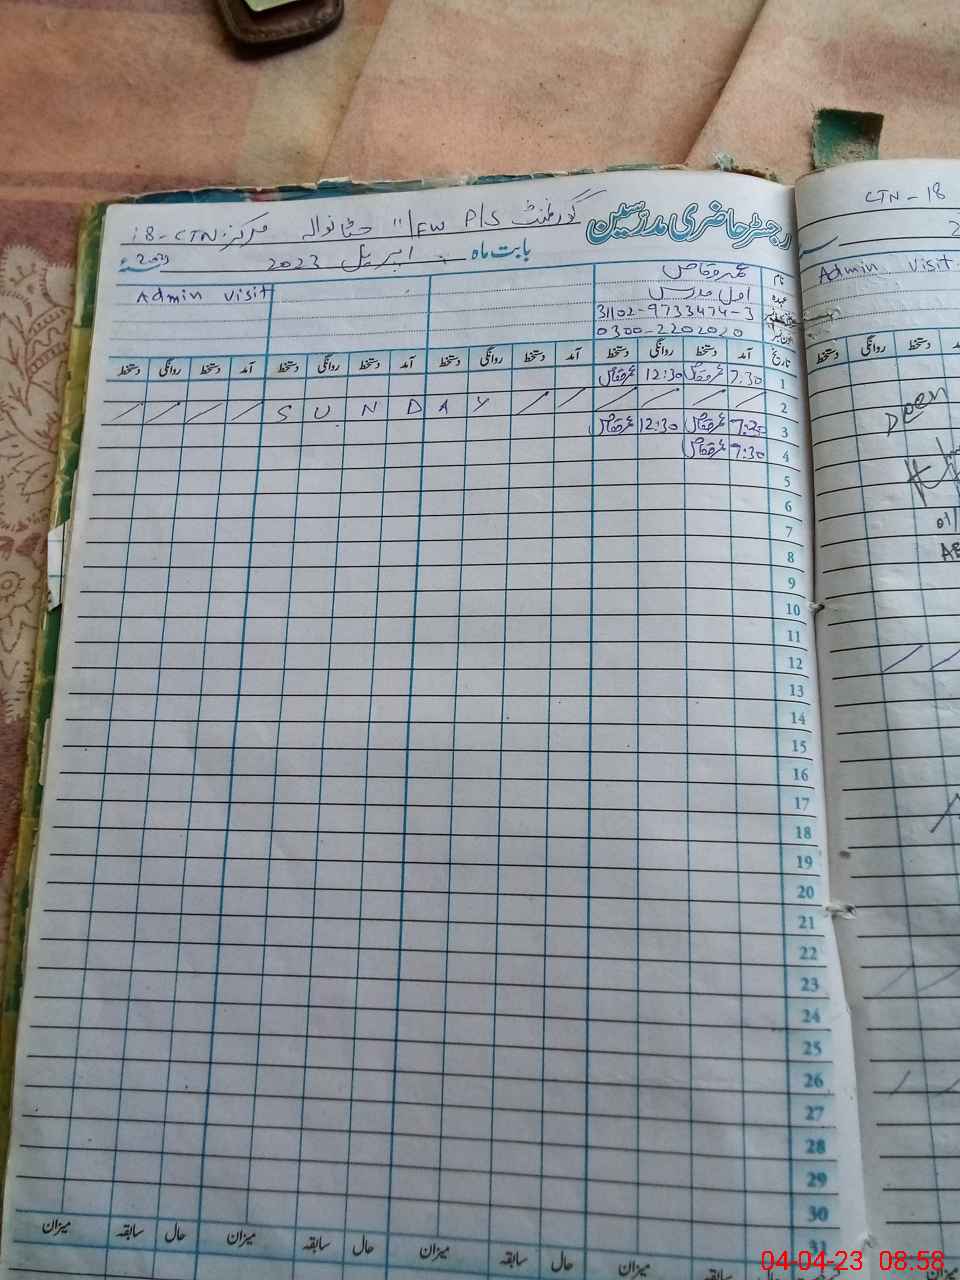 رجسٹر حاضری مدرسین گورنمنٹ P/S 11/FW حٹانوالہ مرکز: 18-CTN
بابت ماہ اپریل 2023 2023ء
نام عمر وقاص Admin visit
عہدہ اول مدرس
31102-9733474-3
0300-2202020
تاریخ آمد دستخط روانگی دستخط آمد دستخط روانگی دستخط آمد دستخط روانگی دستخط آمد دستخط روانگی دستخط
1 7:30 عمروقاص 12:30 عمروقاص
2 S U N D A Y
3 7:30 عمروقاص 12:30 عمروقاص
4 7:30 عمروقاص
5
6
7
8
9
10
11
12
13
14
15
16
17
18
19
20
21
22
23
24
25
26
27
28
29
30
31
میزان حال سابقہ میزان حال سابقہ میزان حال سابقہ میزان
CTN-18
2
Admin visit
دستخط روانگی دستخط
01/
04-04-23 08:58